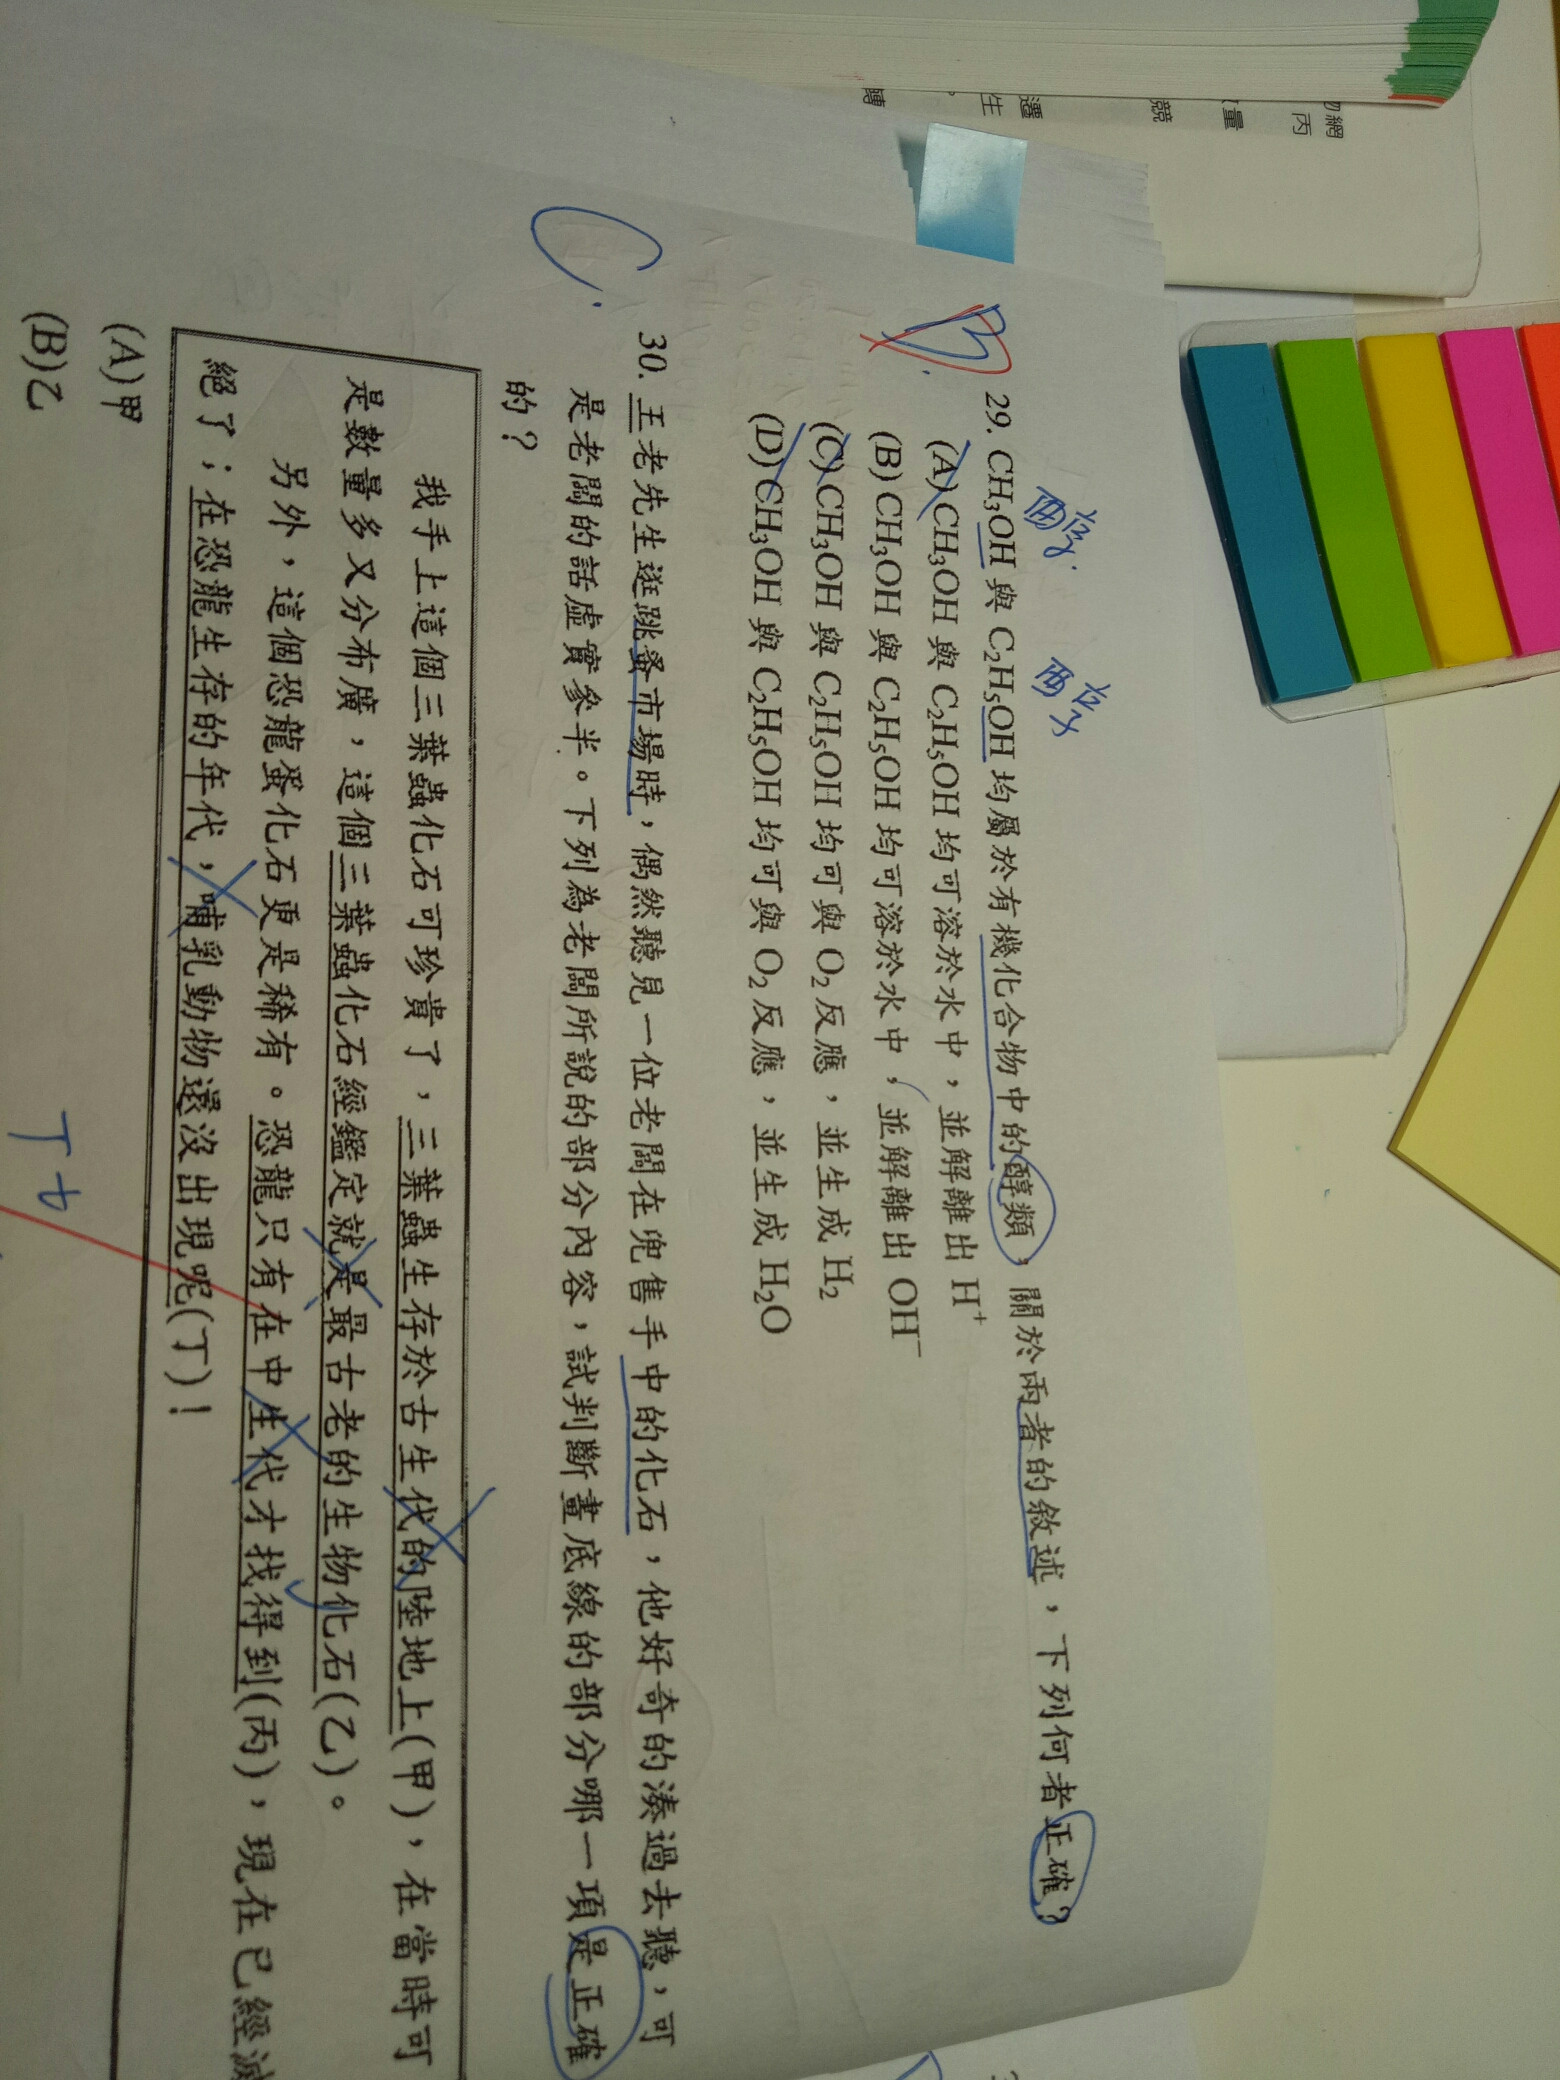 勿網
丙
量
競
遷
生
。
轉
醇
醇
B.
29. CH₃OH 與 C₂H₅OH 均屬於有機化合物中的醇類，關於兩者的敘述，下列何者正確？
(A) CH₃OH 與 C₂H₅OH 均可溶於水中，並解離出 H⁺
(B) CH₃OH 與 C₂H₅OH 均可溶於水中，並解離出 OH⁻
(C) CH₃OH 與 C₂H₅OH 均可與 O₂ 反應，並生成 H₂
(D) CH₃OH 與 C₂H₅OH 均可與 O₂ 反應，並生成 H₂O
C.
30. 王老先生逛跳蚤市場時，偶然聽見一位老闆在兜售手中的化石，他好奇的湊過去聽，可
是老闆的話虛實參半。下列為老闆所說的部分內容，試判斷畫底線的部分哪一項是正確
的？
我手上這個三葉蟲化石可珍貴了，三葉蟲生存於古生代的陸地上(甲)，在當時可
是數量多又分布廣，這個三葉蟲化石經鑑定就是最古老的生物化石(乙)。
另外，這個恐龍蛋化石更是稀有。恐龍只有在中生代才找得到(丙)，現在已經滅
絕了；在恐龍生存的年代，哺乳動物還沒出現呢(丁)！
(A)甲
(B)乙